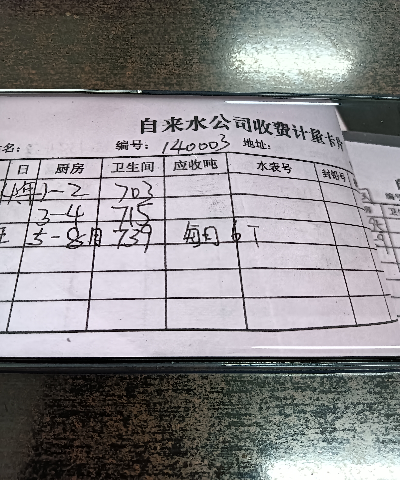 自来水公司收费计量卡片
名： 编号：140003 地址：
日 厨房 卫生间 应收吨 水表号 封铅号
1-2 703
3-4 715
5-8月 739 每月6T
编号